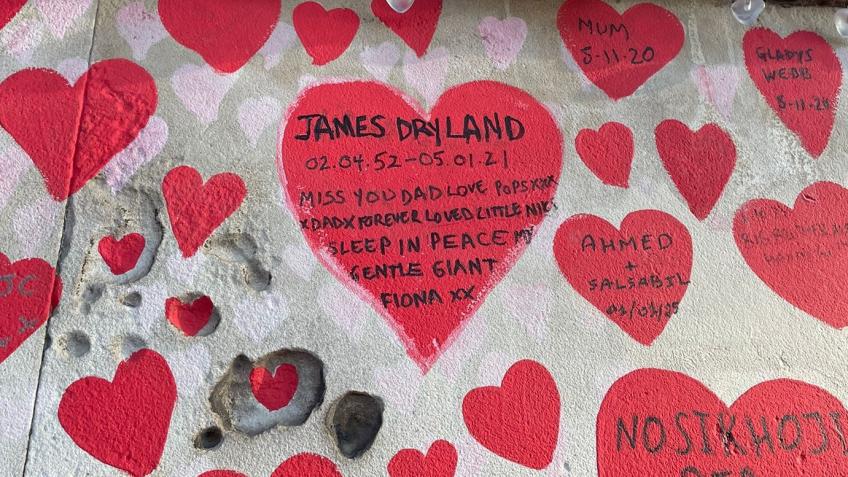 MUM
8-11-20
GLADYS
WEBB
8-11-20
JAMES DRYLAND
02.04.52-05.01.21
MISS YOU DAD LOVE POPS XXX
XDADX FOREVER LOVED LITTLE NIK
SLEEP IN PEACE MY
GENTLE GIANT
FIONA XX
AHMED
+
SALSABIL
JC
X
NOSIKHOJI